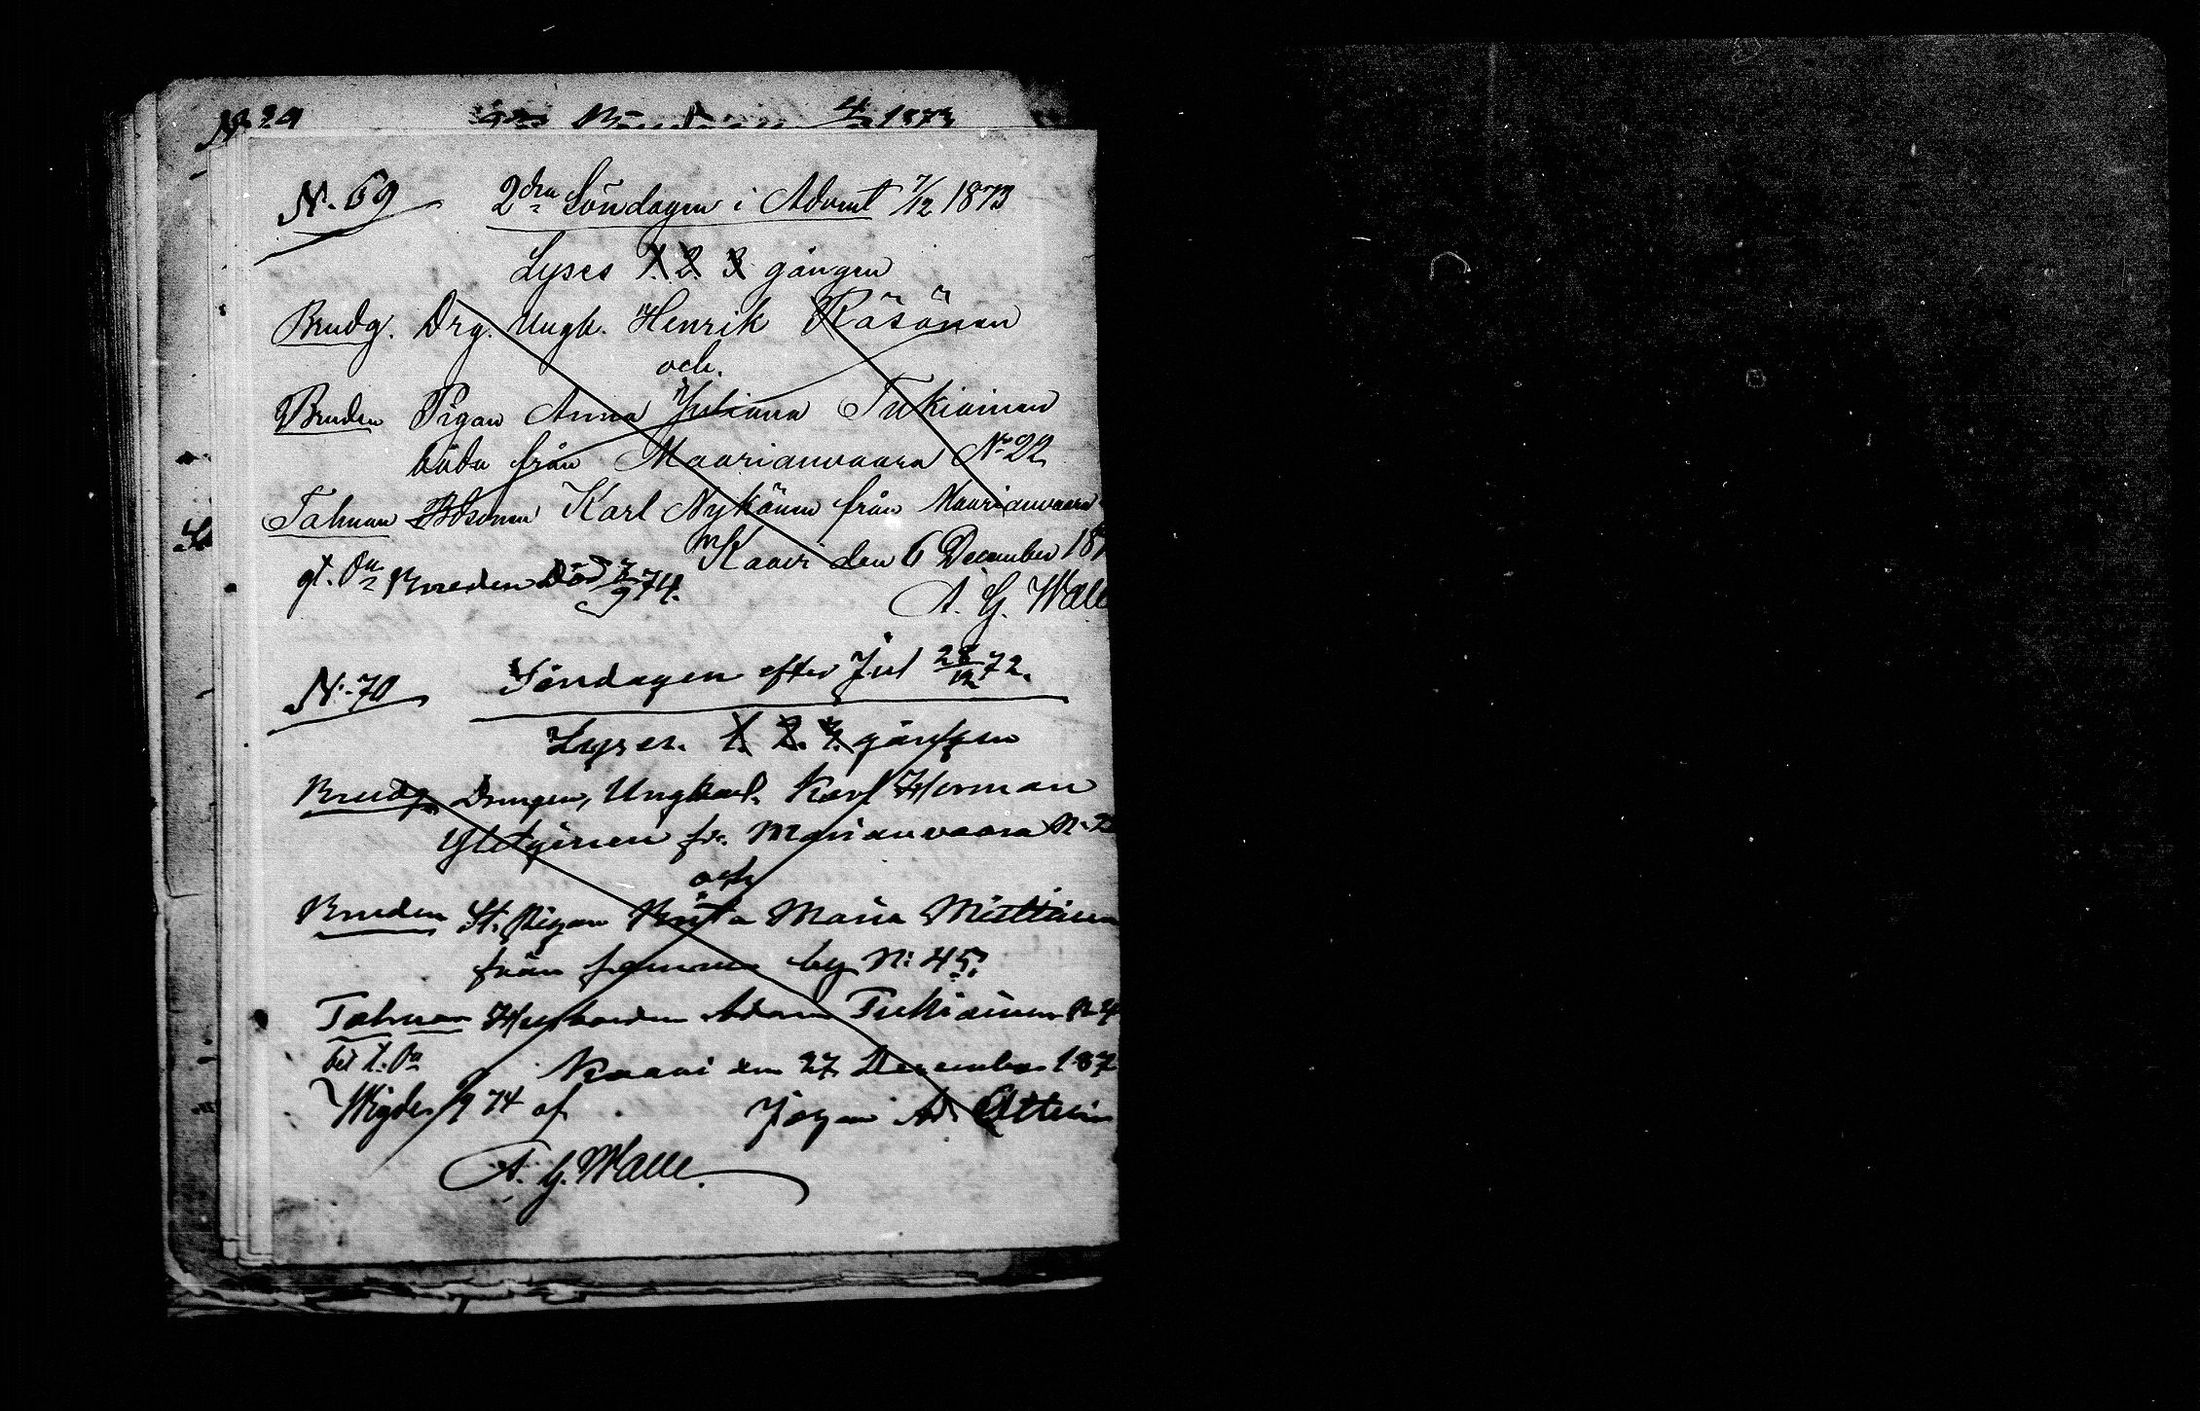 N. 69
2dra Söndagen i Advent 7/12 1873
Lyses 1. 2. 3 gången
Brudg. Drg. Ungk. Henrik Räsänen
och.
Bruden Pigan Anna Juliana Tukiainen
båda från Maarianvaara No 22
Talman Karl Nykänen från Maarianvaara
Kaavi den 6 December 187
gt. Bruden Död 7/9 74.
A. G. Walle
N. 70
Söndagen efter Jul 28/12 72.
Lyses. 1. 2. 3. gången
Brudg Drengen, Ungkarl. Karl Herman
fr. Marianvaara N.
och
Bruden St. Pigan Brita Maria Miettinen
från samma by N: 45.
Talman Husbonden Adam Tukiainen N
Kaavi den 27 December 187
Wigdes 74 af
A. G. Walle.